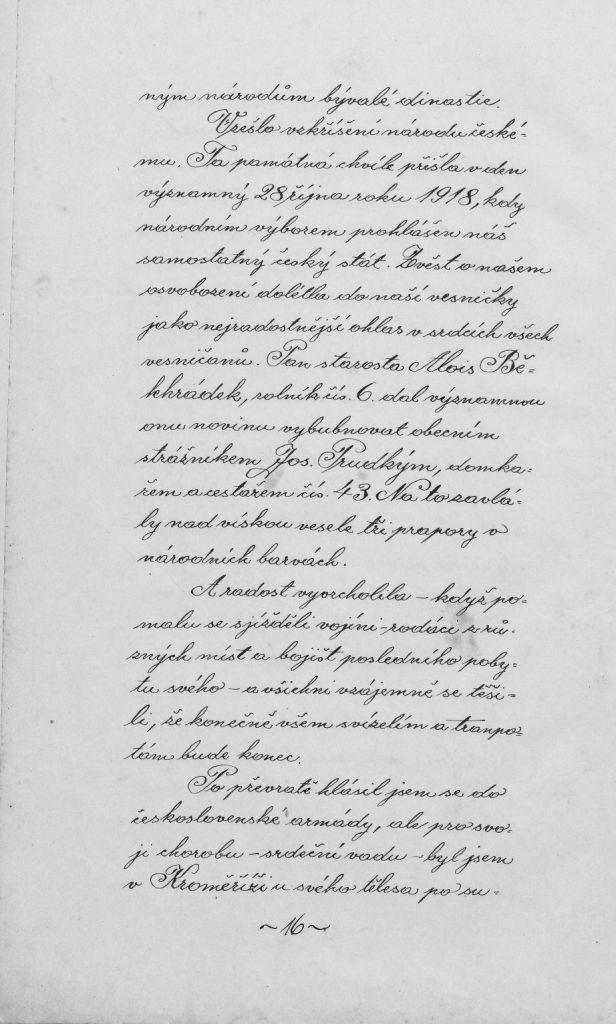 ným národům bývalé dinastie.
Vzešlo vzkříšení národu české-
mu. Ta památná chvíle přišla v den
významný 28 října roku 1918, kdy
národním výborem prohlášen náš
samostatný český stát. Zvěst o našem
osvobození dolétla do naší vesničky
jako nejradostnější ohlas v srdcích všech
vesničanů. Pan starosta Alois Bě-
lehrádek, rolník čís. 6. dal významnou
onu novinu vybubnovat obecním
strážníkem Jos. Prudkým, domka-
řem a cestařem čís. 43. Na to zavlá-
ly nad vískou vesele tři prapory v
národních barvách.
A radost vyvrcholila – když po-
malu se sjížděli vojíni-rodáci z rů-
zných míst a bojišť posledního poby-
tu svého – a všichni vzájemně se těši-
li, že konečně všem svízelím a tranpo-
tám bude konec.
Po převratě hlásil jsem se do
československé armády, ale pro svo-
ji chorobu – srdeční vadu – byl jsem
v Kroměříži u svého tělesa po su-
~16~